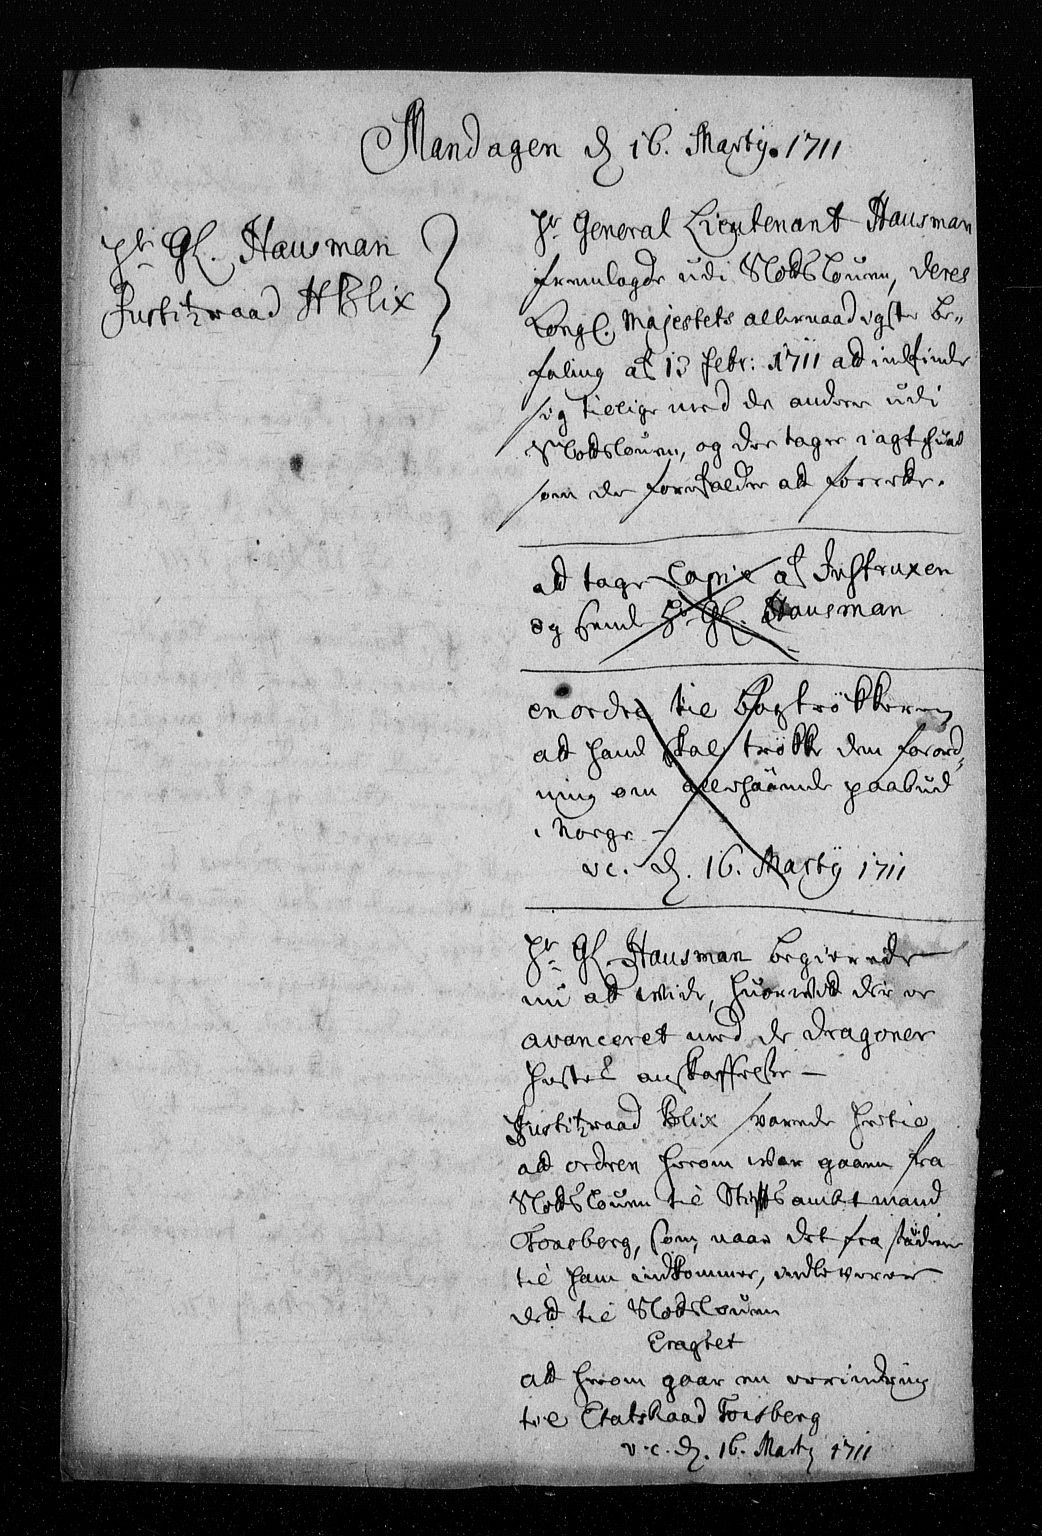 Mandagen d 16. Martÿ. 1711
Hr. Gl. Hausman
Justitzraad HBlix
Hr General Lieutenant Hausman
fremlagde udi Slodslouen, deres
Kongl. Majestets allernaadigste be-
faling af 13 Febr: 1711 att indfinde
sig tillige med de andre udi
Slodslouen, og der tage i agt hvad
som der forefalder att forrette.
att tage Copie af Instruxen
og sende Hr. Gl. Hausman
en ordre til bogtrøkkeren
att hand skal trøkke den forord-
ning om paabud
i Norge -
v c. d. 16. Martÿ 1711
Hr. Gl. Hausman begierede
nu att wide, huorwit der er
avanceret med de dragoner
heste anskaffelse -
Justitzraad Blix svarede hertil
att ordren herom war gaaen fra
Slodslouen til Stiftsambtmand
Tonsberg, som, naar det fra stæderne
til ham indkommer, indleverer
dett til Slodslouen
Eragtet
att herom gaar en erindring
til Etatsraad Tonsberg
v. c. d. 16. Martÿ 1711